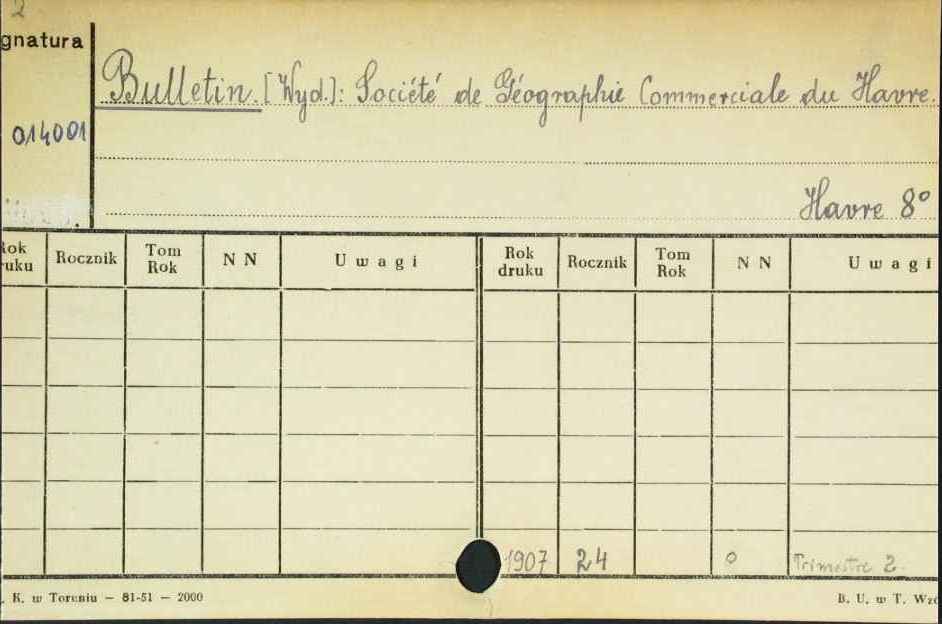 2
gnatura
Bulletin. [Wyd.]: Société de Géographie Commerciale du Havre.
014001
Havre 8°
Rok druku Rocznik Tom Rok NN Uwagi Rok druku Rocznik Tom Rok NN Uwagi
1907 24 0 Trimestre 2.
. K. w Toruniu — 81-51 — 2000 B. U. w T. Wzó